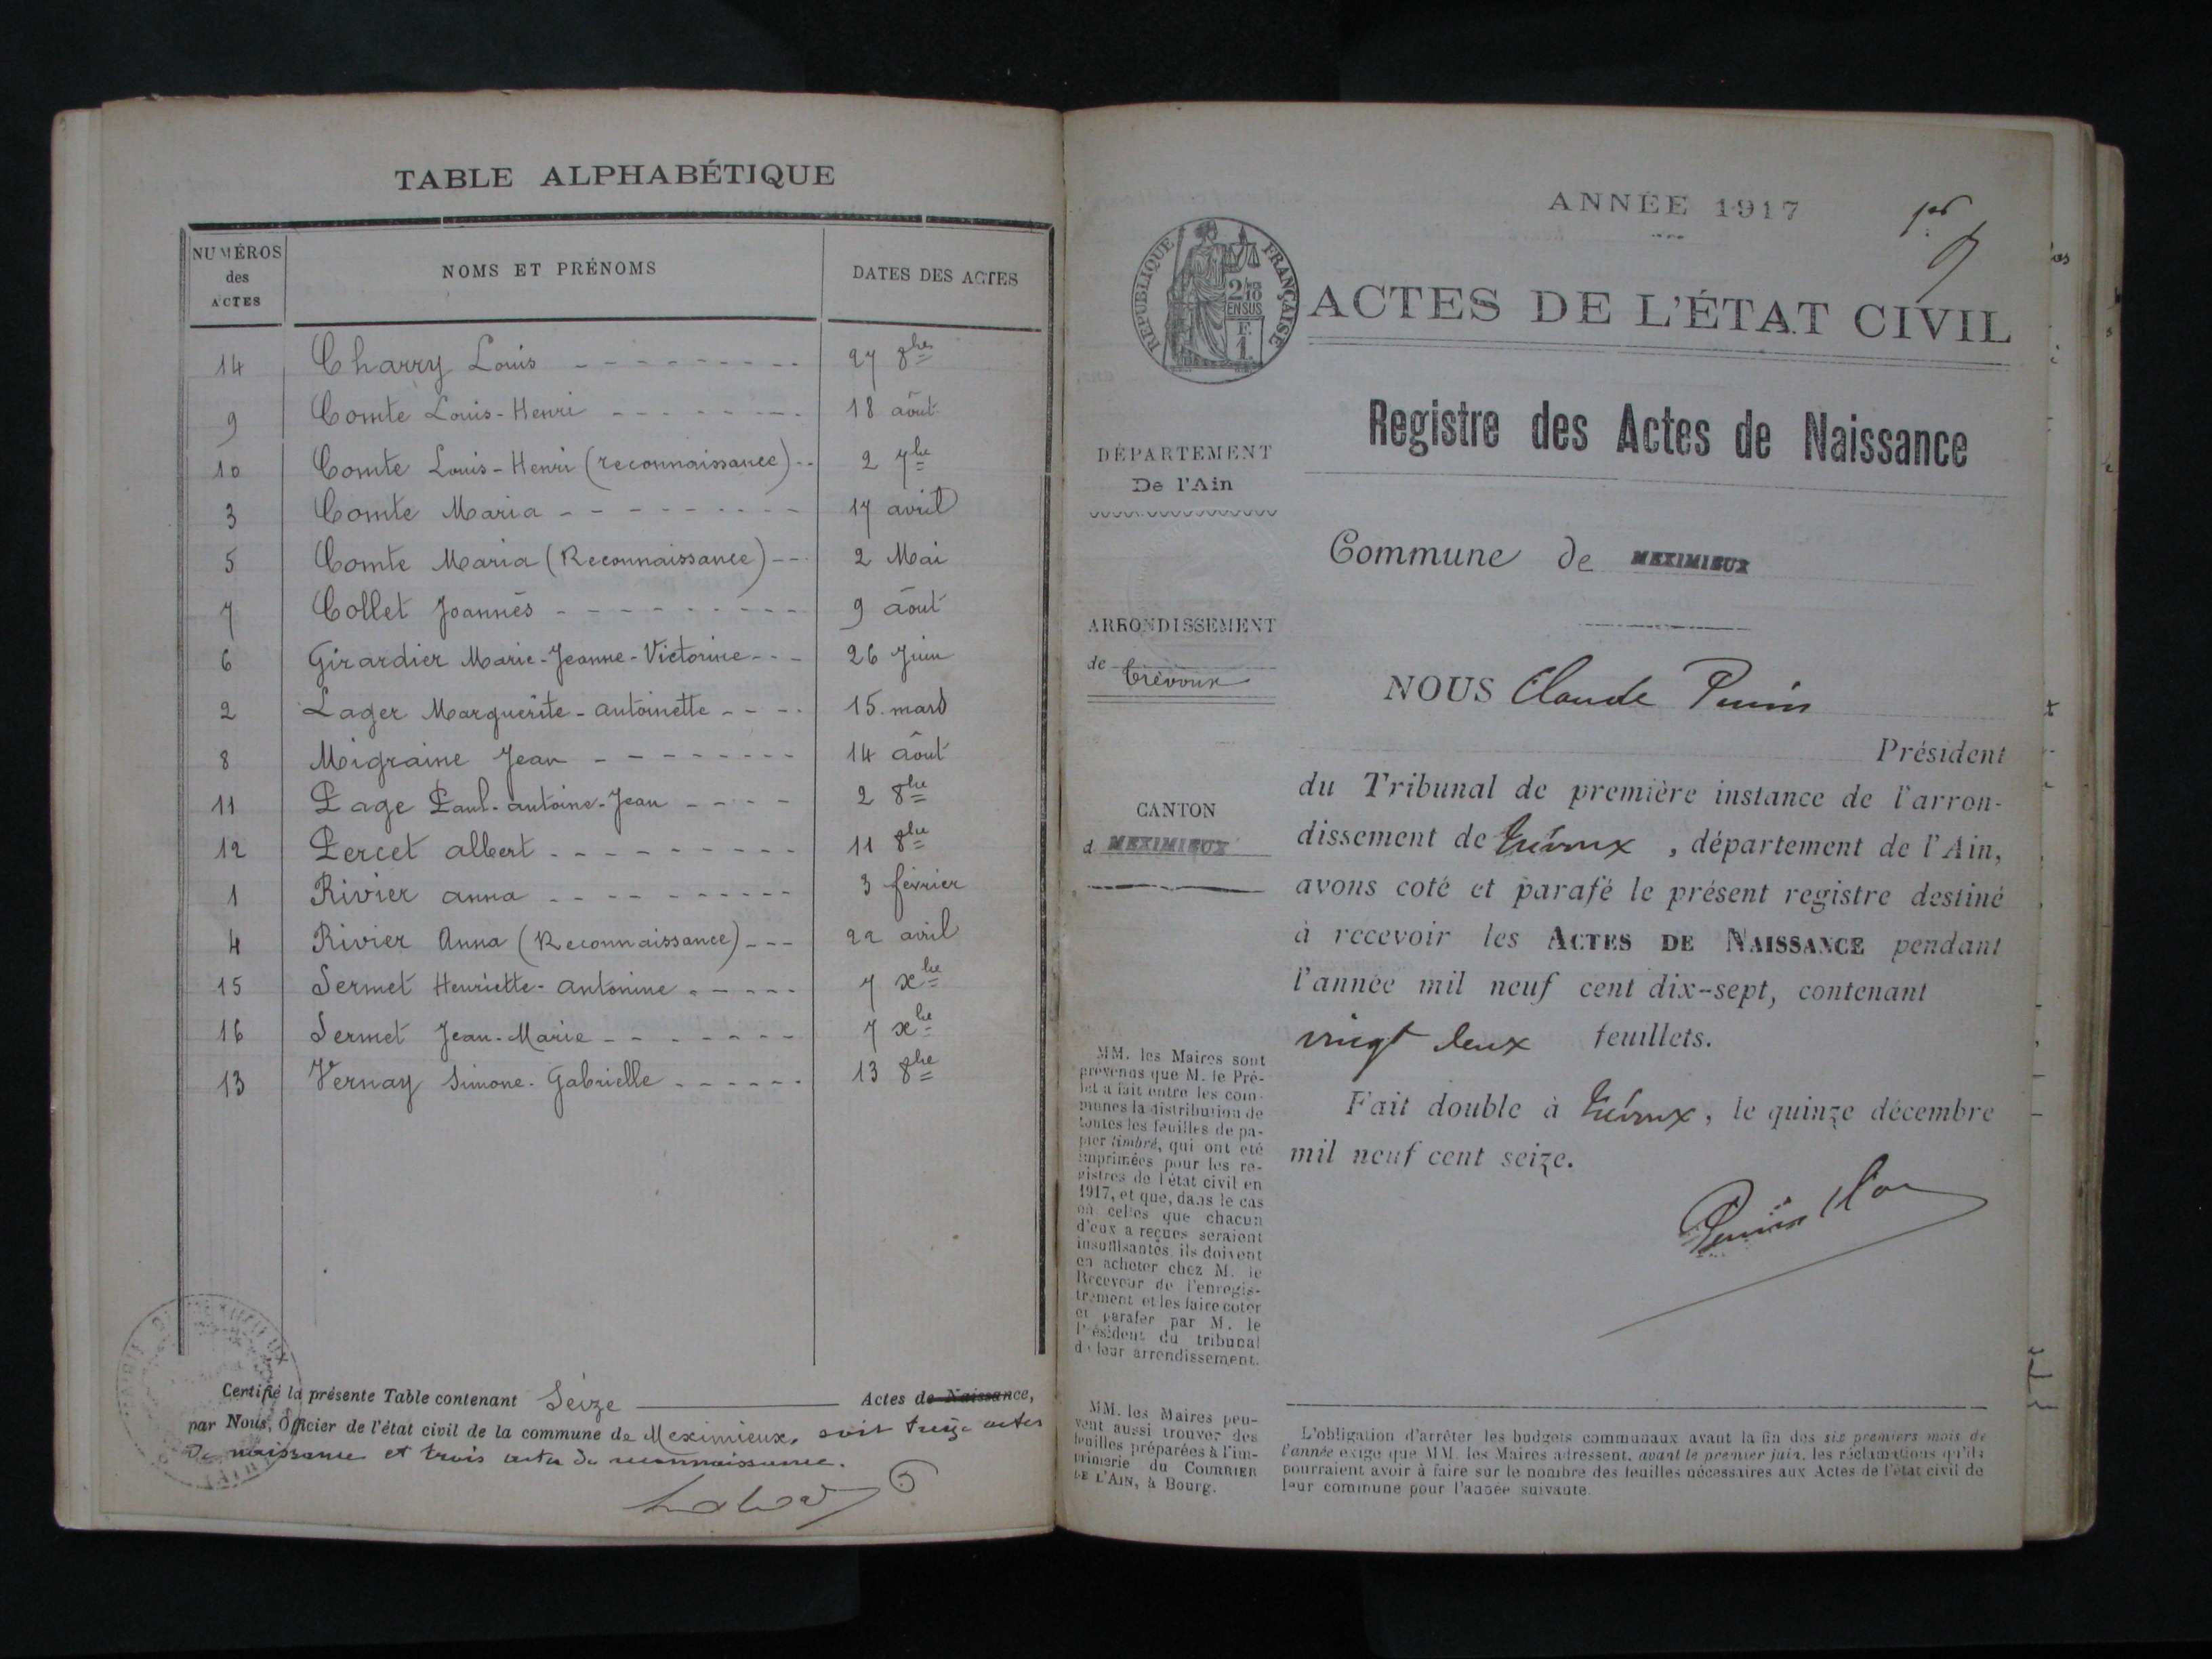 TABLE ALPHABÉTIQUE
NUMÉROS
des
ACTES
NOMS ET PRÉNOMS
DATES DES ACTES
14 Charry Louis - - - - - - - - - 27 8bre
9 Comte Louis-Henri - - - - - - - - 18 août
10 Comte Louis-Henri (reconnaissance) - - 2 7bre
3 Comte Maria - - - - - - - - - 17 avril
5 Comte Maria (Reconnaissance) - - - 2 Mai
7 Collet Joannès - - - - - - - - - 9 août
6 Girardier Marie-Jeanne-Victorine - - - 26 Juin
2 Lager Marguerite-antoinette - - - - 15. mars
8 Migraine Jean - - - - - - - - 14 août
11 Page Paul-antoine-Jean - - - - 2 8bre
12 Percet albert - - - - - - - - - 11 8bre
1 Rivier anna - - - - - - - - - - 3 février
4 Rivier Anna (Reconnaissance) - - - 22 avril
15 Sermet Henriette-antonine - - - - - 7 xbre
16 Sermet Jean-Marie - - - - - - - 7 xbre
13 Vernay Simone-Gabrielle - - - - - - 13 8bre
Certifié la présente Table contenant Seize Actes de Naissance,
par Nous, Officier de l'état civil de la commune de Meximieux, soit treize actes
de naissance et trois actes de reconnaissance.
ANNÉE 1917
RÉPUBLIQUE FRANÇAISE
ACTES DE L'ÉTAT CIVIL
Registre des Actes de Naissance
DÉPARTEMENT
De l'Ain
Commune de MEXIMIEUX
ARRONDISSEMENT
de Trévoux
NOUS Claude
Président
CANTON
d MEXIMIEUX
du Tribunal de première instance de l'arron-
dissement de Trévoux, département de l'Ain,
avons coté et parafé le présent registre destiné
à recevoir les ACTES DE NAISSANCE pendant
l'année mil neuf cent dix-sept, contenant
vingt deux feuillets.
Fait double à Trévoux, le quinze décembre
mil neuf cent seize.
MM. les Maires sont
prévenus que M. le Pré-
fet a fait entre les com-
munes la distribution de
toutes les feuilles de pa-
pier timbré, qui ont été
imprimées pour les re-
gistres de l'état civil en
1917, et que, dans le cas
où celles que chacun
d'eux a reçues seraient
insuffisantes, ils doivent
en acheter chez M. le
Receveur de l'enregis-
trement et les faire coter
et parafer par M. le
Président du tribunal
de leur arrondissement.
MM. les Maires peu-
vent aussi trouver des
feuilles préparées à l'im-
primerie du COURRIER
DE L'AIN, à Bourg.
L'obligation d'arrêter les budgets communaux avant la fin des six premiers mois de
l'année exige que MM. les Maires adressent, avant le premier juin, les réclamations qu'ils
pourraient avoir à faire sur le nombre des feuilles nécessaires aux Actes de l'état civil de
leur commune pour l'année suivante.